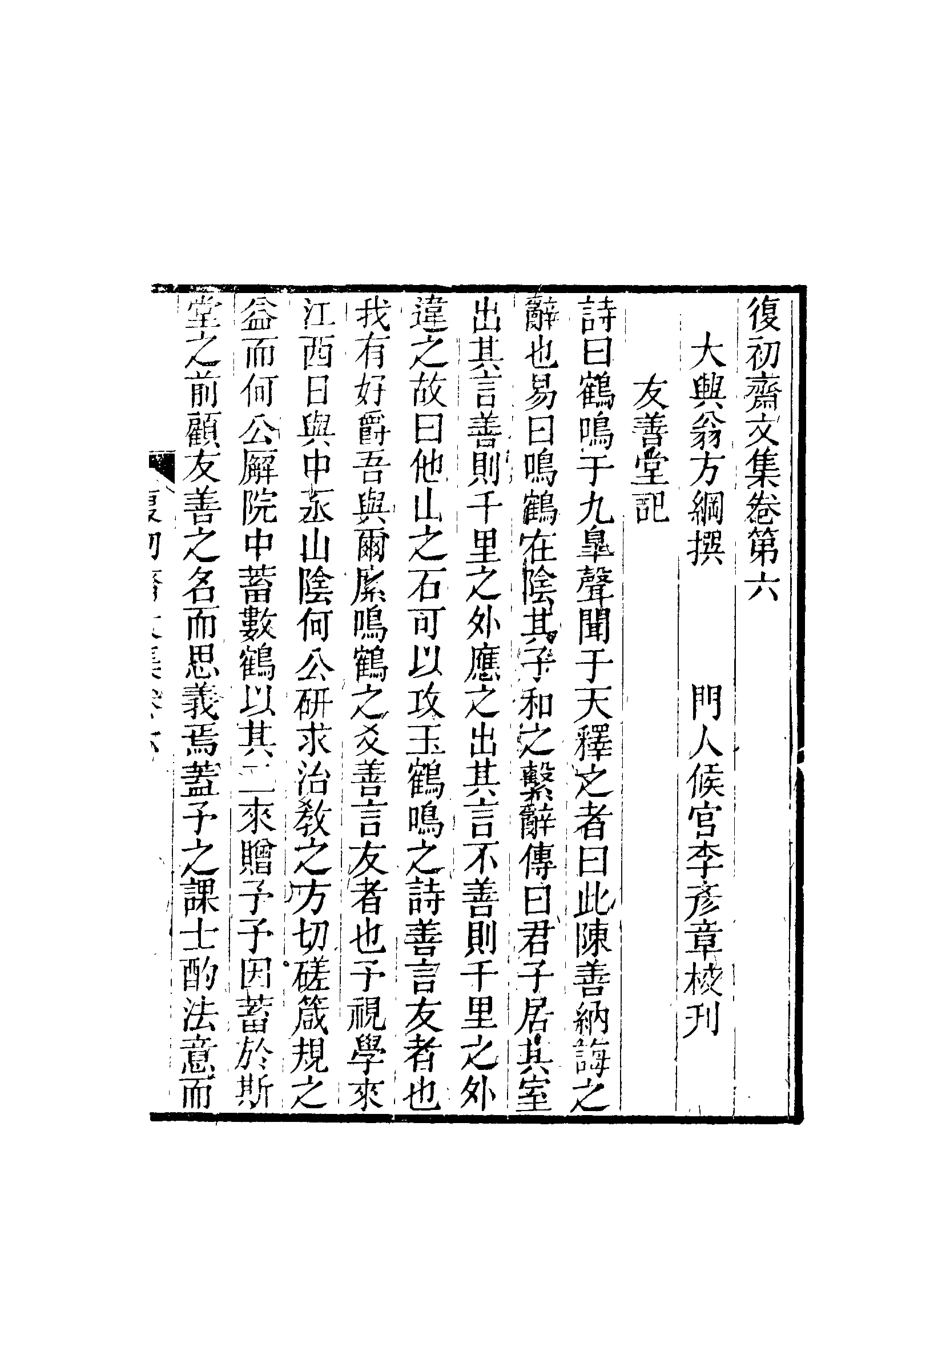 復初齋文集卷第六
大興翁方綱撰　門人候官李彥章校刊
友善堂記
詩曰鶴鳴于九臯聲聞于天釋之者曰此陳善納誨之
辭也易曰鳴鶴在陰其子和之繫辭傳曰君子居其室
出其言善則千里之外應之出其言不善則千里之外
違之故曰他山之石可以攻玉鶴鳴之詩善言友者也
我有好爵吾與爾縻鳴鶴之爻善言友者也予視學來
江西日與中丞山陰何公硏求治教之方切磋箴規之
益而何公廨院中蓄數鶴以其二來贈予予因蓄於斯
堂之前顧友善之名而思義焉蓋予之課士酌法意而
復初齋文集卷六